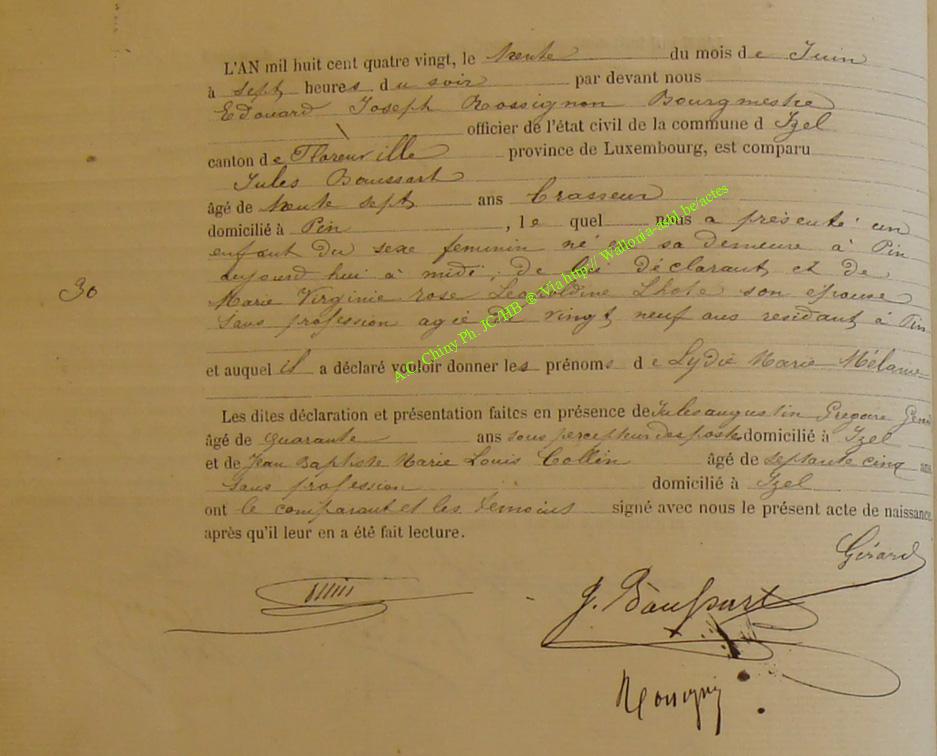 L'AN mil huit cent quatre vingt, le trente du mois de Juin
à sept heures du soir par devant nous
Edouard Joseph Rossignon Bourgmestre
officier de l'état civil de la commune d Izel
canton de Florenville province de Luxembourg, est comparu
Jules Baussart
âgé de trente sept ans brasseur
domicilié à Pin , le quel nous a présenté un
enfant du sexe feminin né en sa demeure à Pin
aujourd hui à midi, de lui déclarant et de
Marie Virginie rose Léopoldine Lhote son épouse
sans profession agée de vingt neuf ans residant à Pin
30
et auquel il a déclaré vouloir donner les prénoms de Lydie Marie Mélanie
Les dites déclaration et présentation faites en présence de Jules augustin Gregoire
âgé de quarante ans sous percepteur des postes domicilié à Izel
et de Jean Baptiste Marie Louis Collin âgé de septante cinq ans
sans profession domicilié à Izel
ont le comparant et les temoins signé avec nous le présent acte de naissance
après qu'il leur en a été fait lecture.
Gérard
J. Baussart
A.C. Chiny Ph. JC/HB ® Via http:// Wallonia-asbl.be/actes